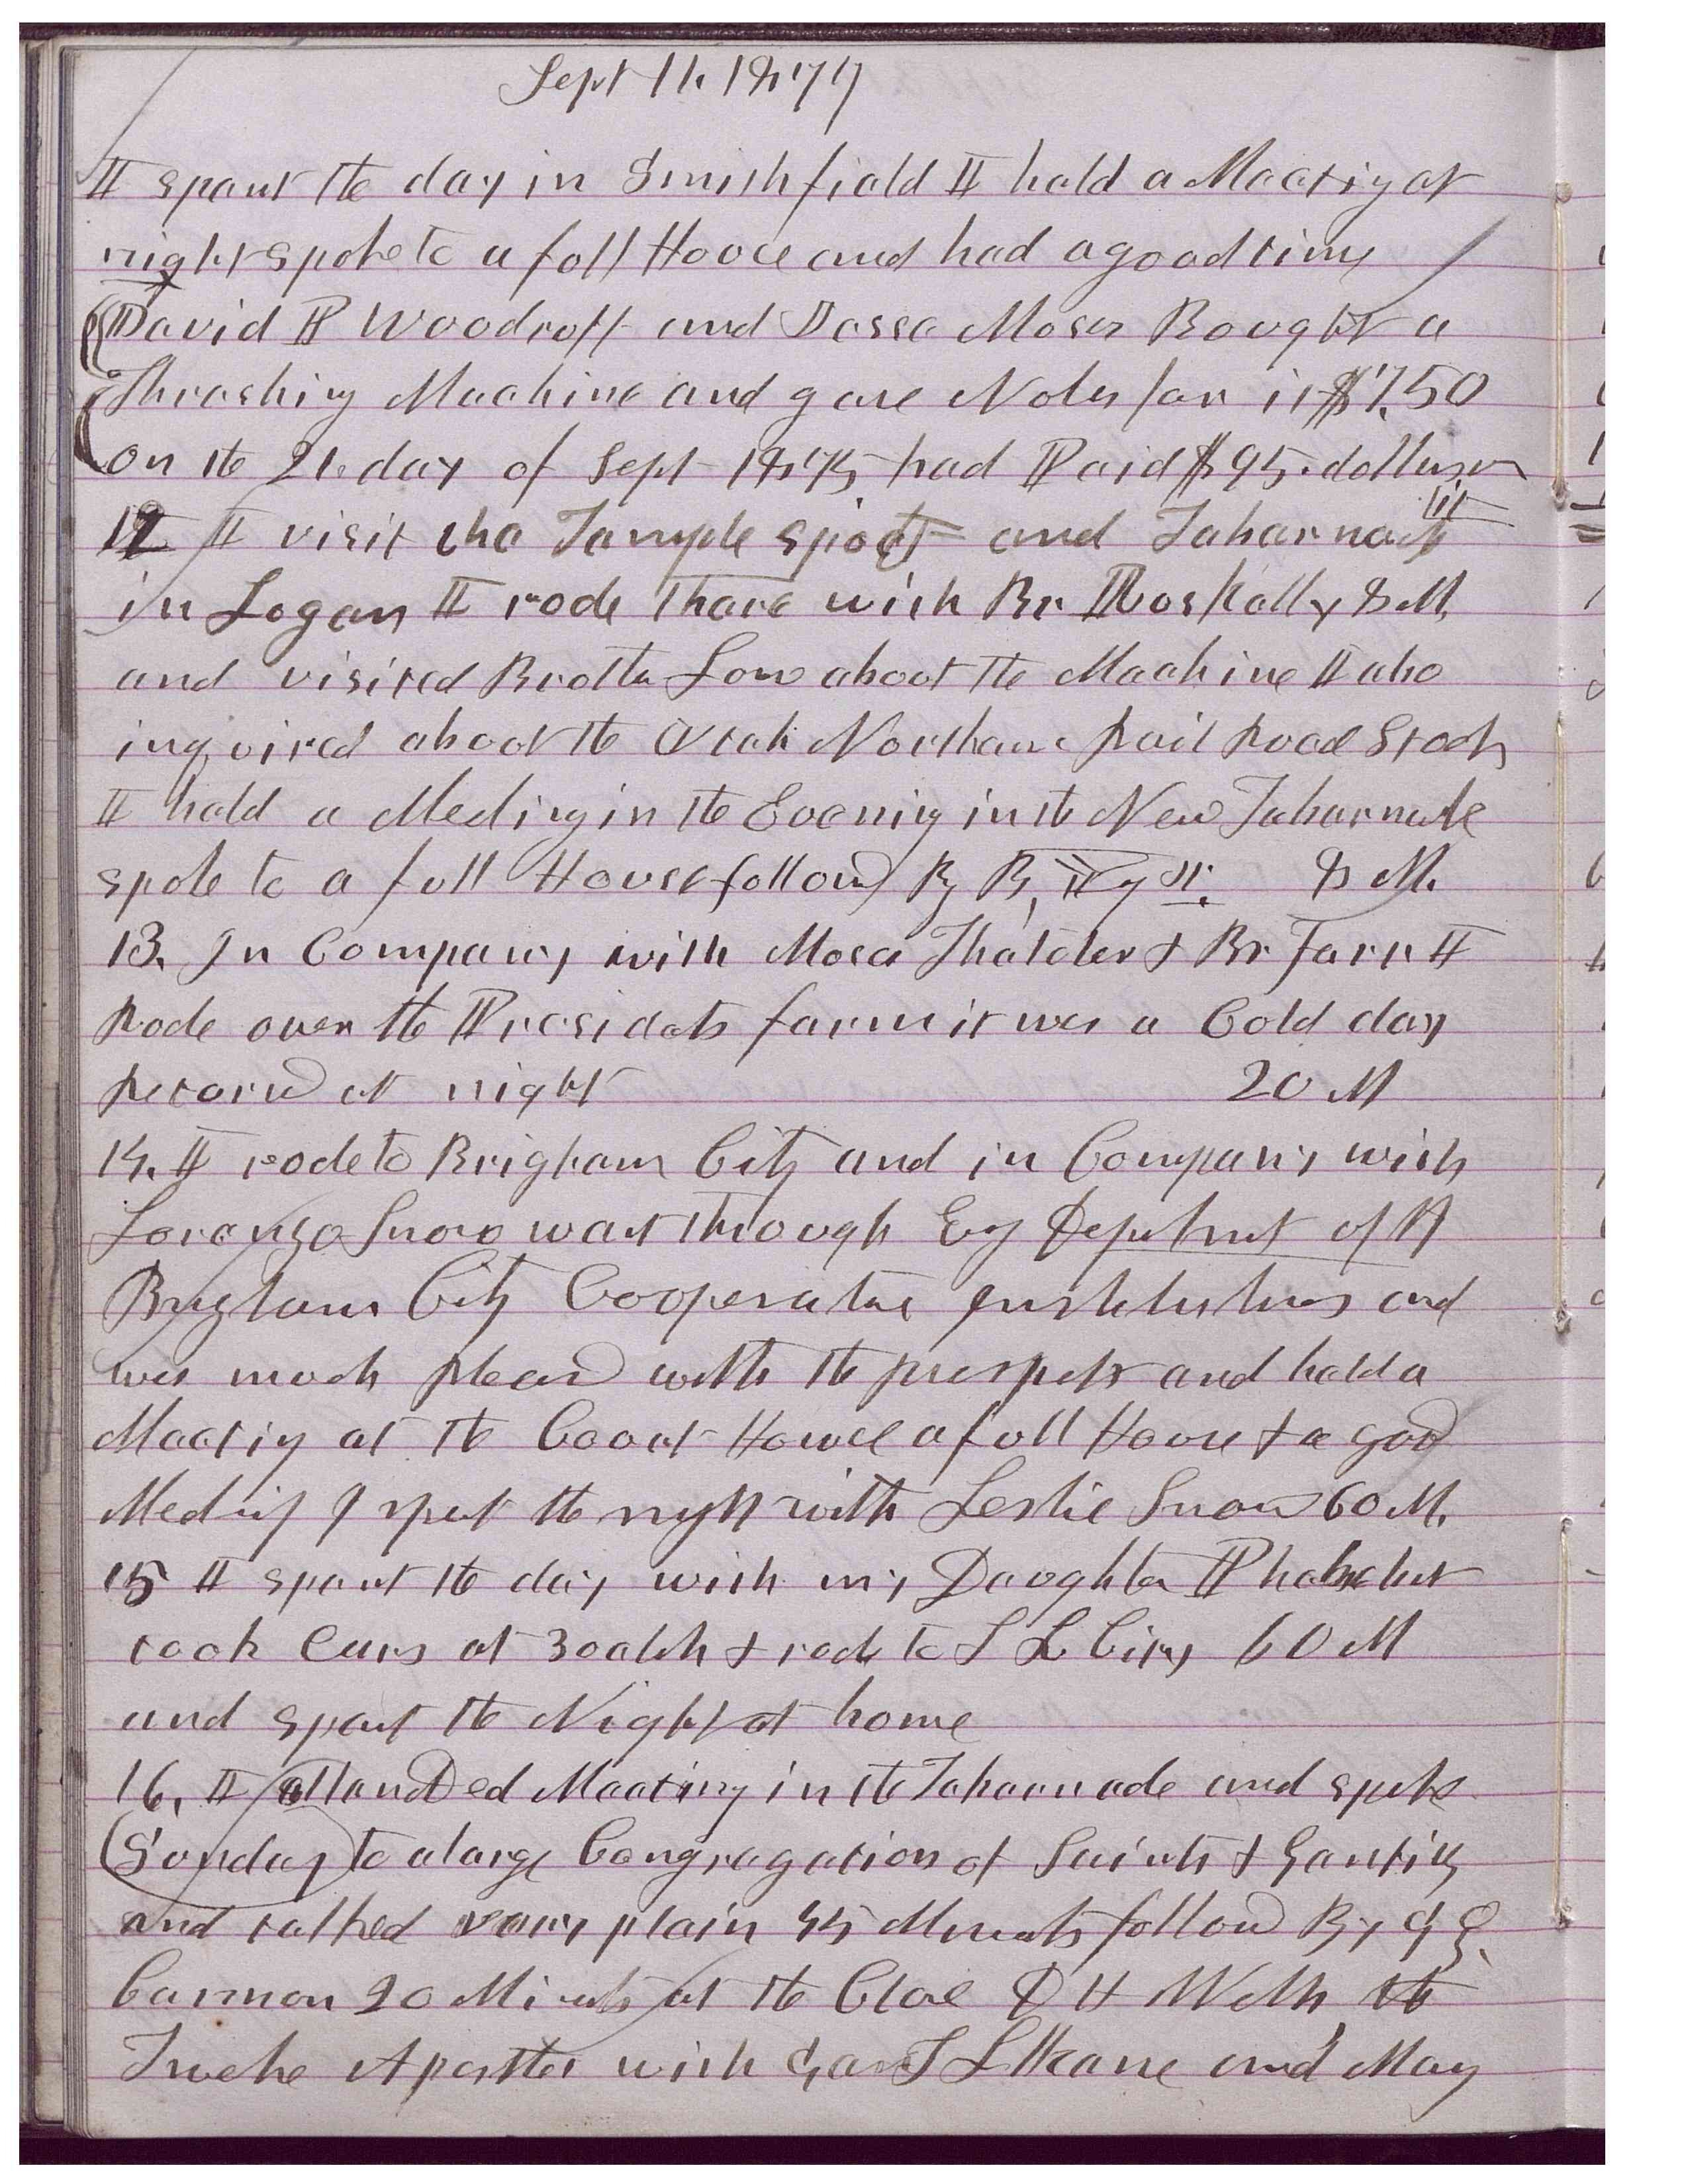 Sept 11. 1877
I spent the day in Smithfield I held a Meeting at
night spoke to a full House and had a good time
David P Woodruff and Moser Bought a
Thrashing Machine and gave Notes for it $750
on the 21. day of Sept 1875 had Paid $95. dollars on
it
12 I visit the Temple spot and Tabernacle
in Logan I rode there with Br Roskelly 8 M.
and visited Brother Low about the Machine I also
inquired about the Utah Northern Rail Road Stock
I held a Meeting in the Evening in the New Tabernacle
spoke to a full House followd By B, Yg Jr. 8 M.
13. In Company with Moses Thatcher & Br Farr I
Rode over the Presidets farm it was a Cold day
Returnd at night 20 M
14. I rode to Brigham City and in Company with
Lorenzo Snow went through Evry Depetmet of
Brigham City Cooperative Institutions and
was much pleasd with the prospets and held a
Meeting at the Court House a full House & a good
Meeting I spet the night with Leslie Snow 60 M.
15 I spent the day with my Daughter Phebe but
took Cars at 3 oclok & rode to S L City 60 M
and spent the Night at home
16. I attanded Meeting in the Tabernacle and spoke
Sunday to a large Congregation of Saints & Gentiles
and talked very plain 45 Minuts followd By G Q.
Cannon 20 Minuts at the Close D H Wells the
Twelve Apostles with Gen T L Kane and May